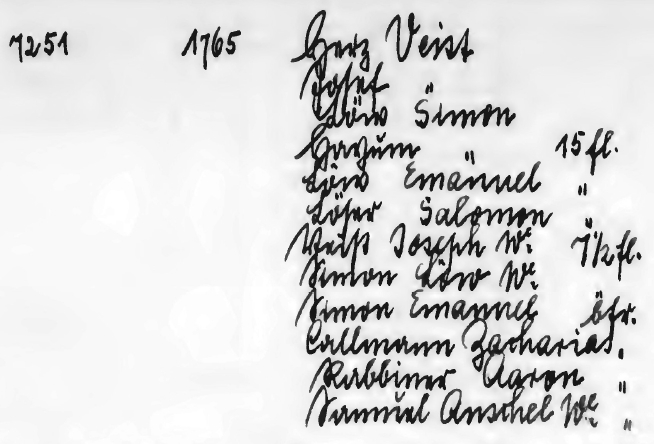 7251 1765 Herz Veist
Josef "
Löw Simon
Hayum " 15 fl.
Löw Emanuel "
Löser Salomon "
Veist Joseph We. 7½ fl.
Simon Löw We.
Simon Emanuel öfr.
Callmann Zacharias "
Rabbiner Aaron "
Samuel Anschel We. "